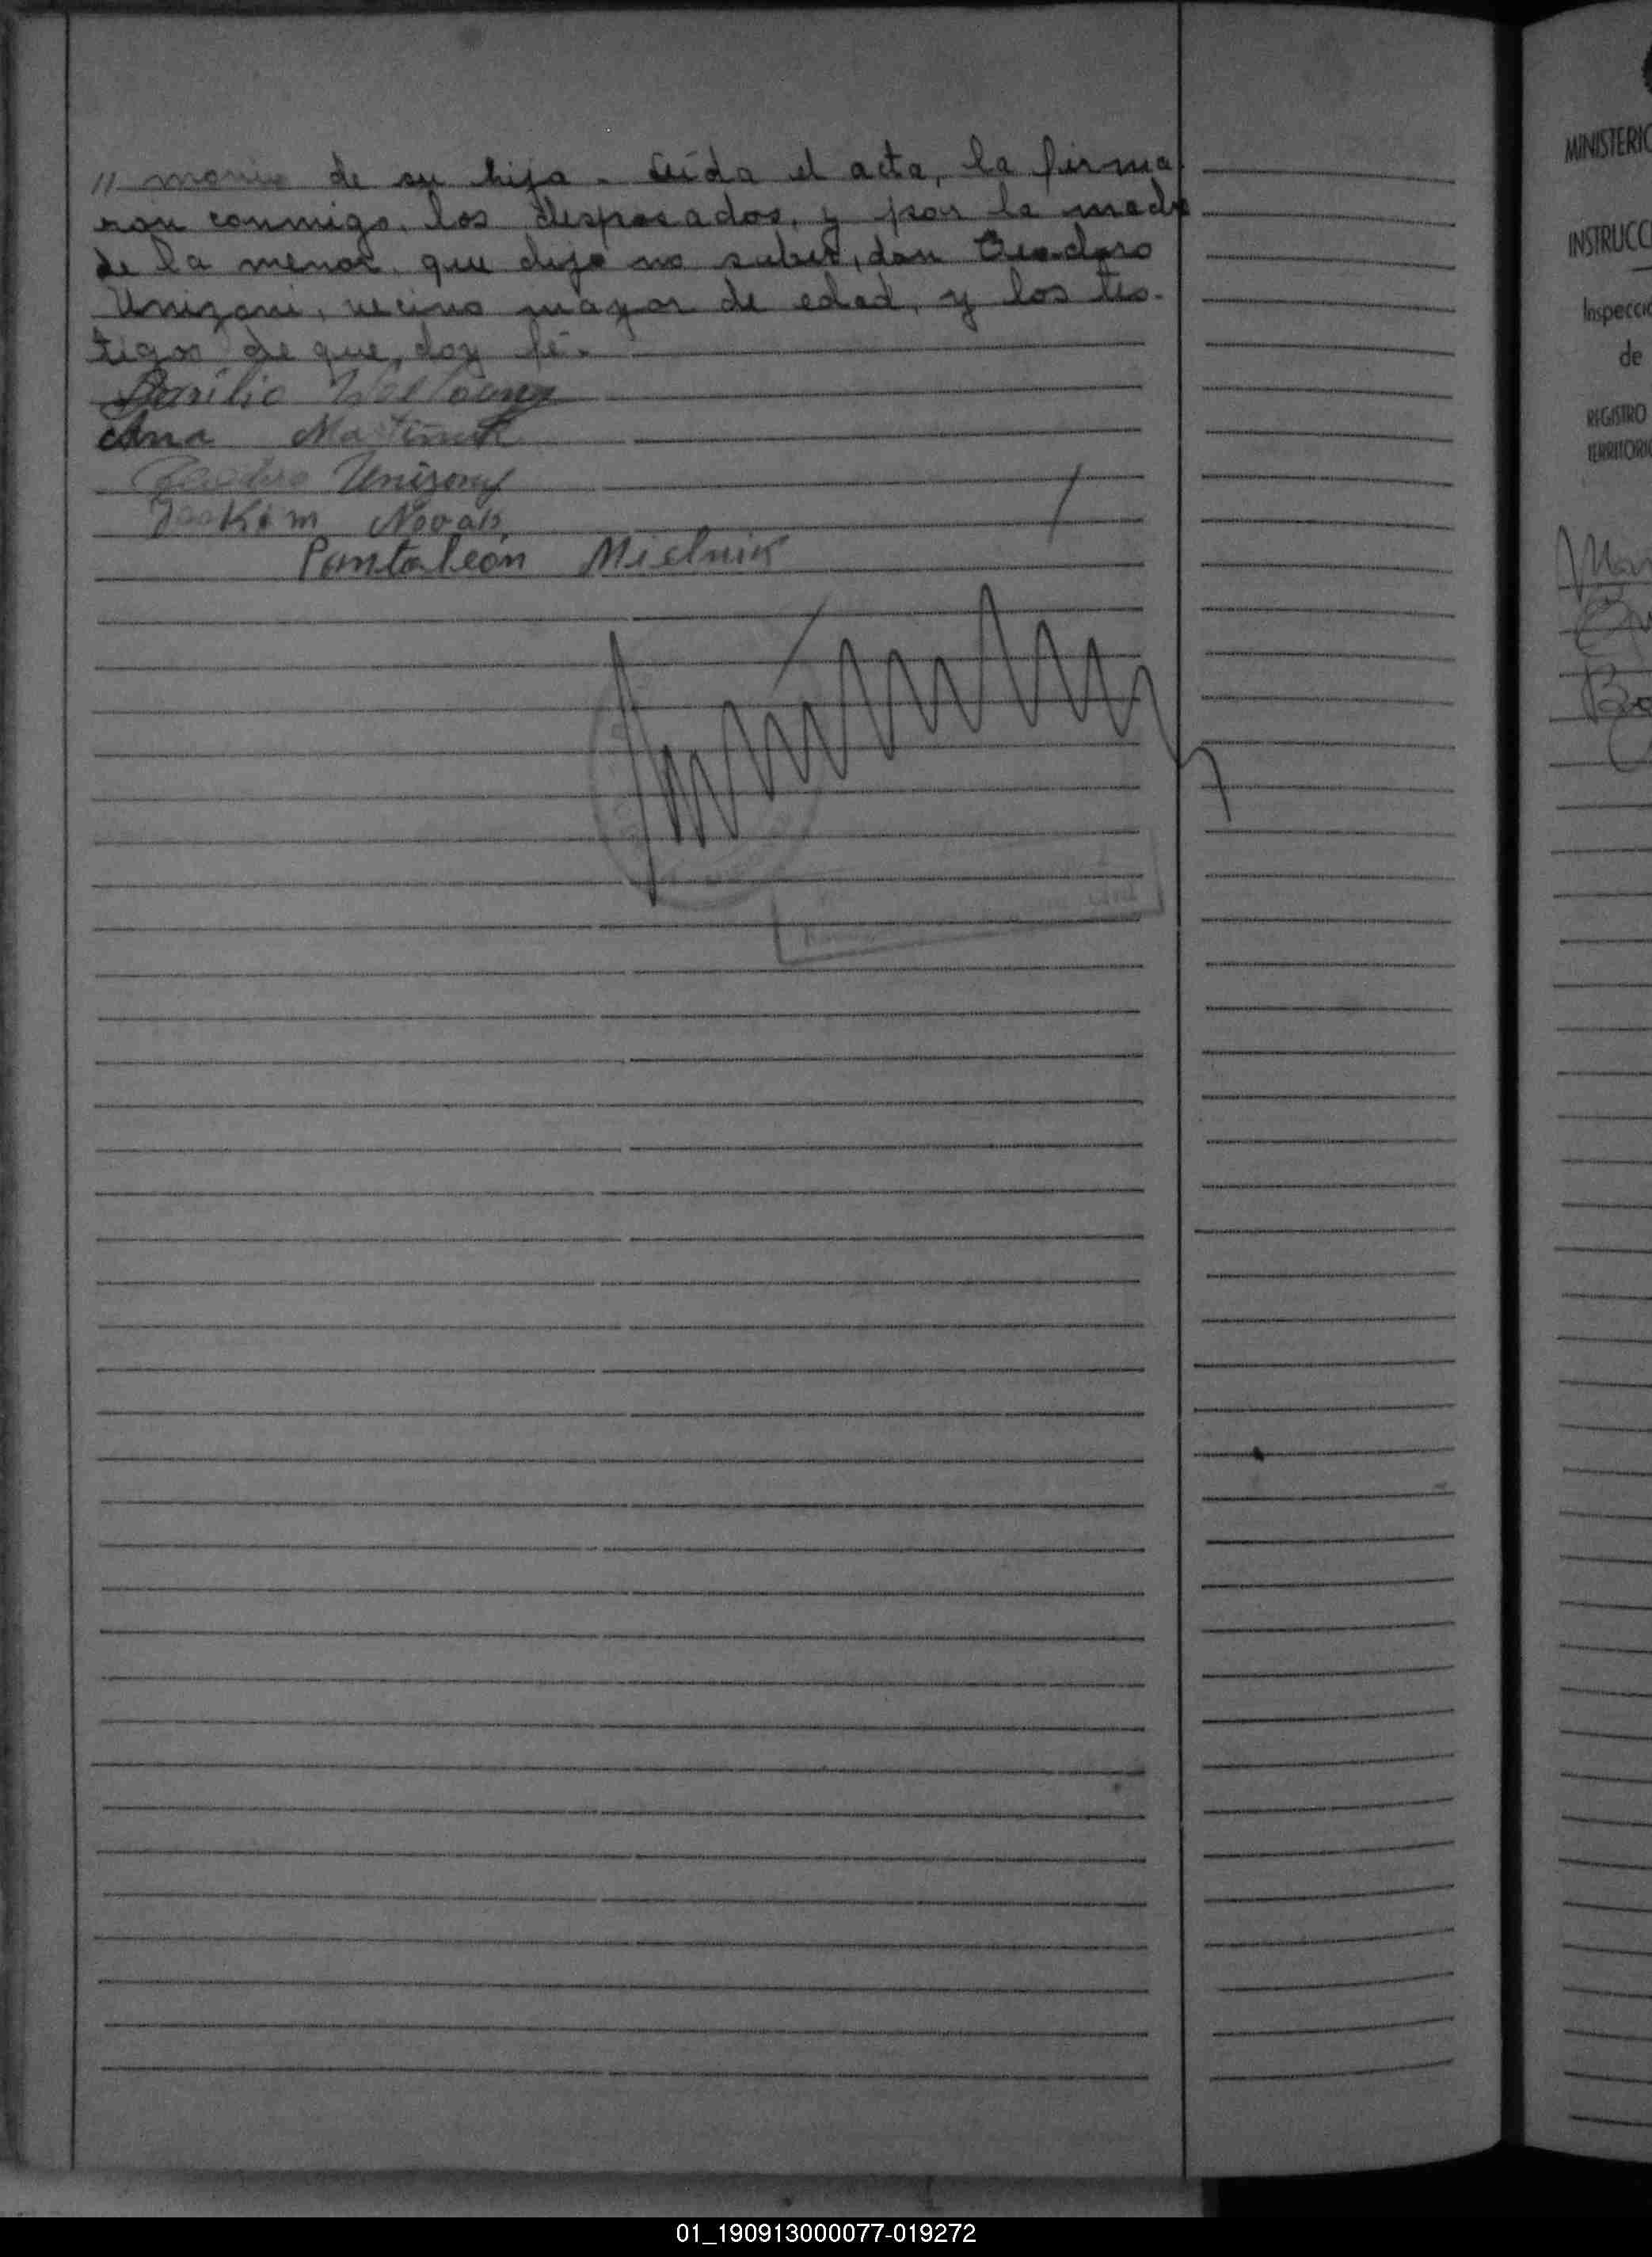 " monio de su hija - Leída el acta, la firma
ron conmigo, los desposados, y por la madre
de la menor, que dijo no saber, don Teodoro
Unizoni, vecino mayor de edad, y los tes-
tigos de que, doy fé.-
Basilio
Ana
Unizony
Joakim Novak
Pantaleón Mielnik
MINISTERIO
INSTRUCCI
Inspecció
de
REGISTRO
TERRITORI
01_190913000077-019272